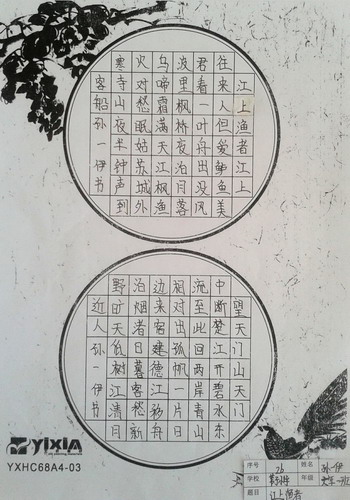 江上渔者江上
往来人但爱鲈鱼美
君看一叶舟出没风
波里枫桥夜泊月落
乌啼霜满天江枫渔
火对愁眠姑苏城外
寒寺山夜半钟声到
客船孙一伊书
望天门山天门
中断楚江开碧水东
流至此回两岸青山
相对出孤帆一片日
边来宿建德江移舟
泊烟渚日暮客愁新
野旷天低树江清月
近人孙一伊书
YIXIN
YXHC68A4-03
序号 26 姓名 孙一伊
学校 年级
题目 江上渔者